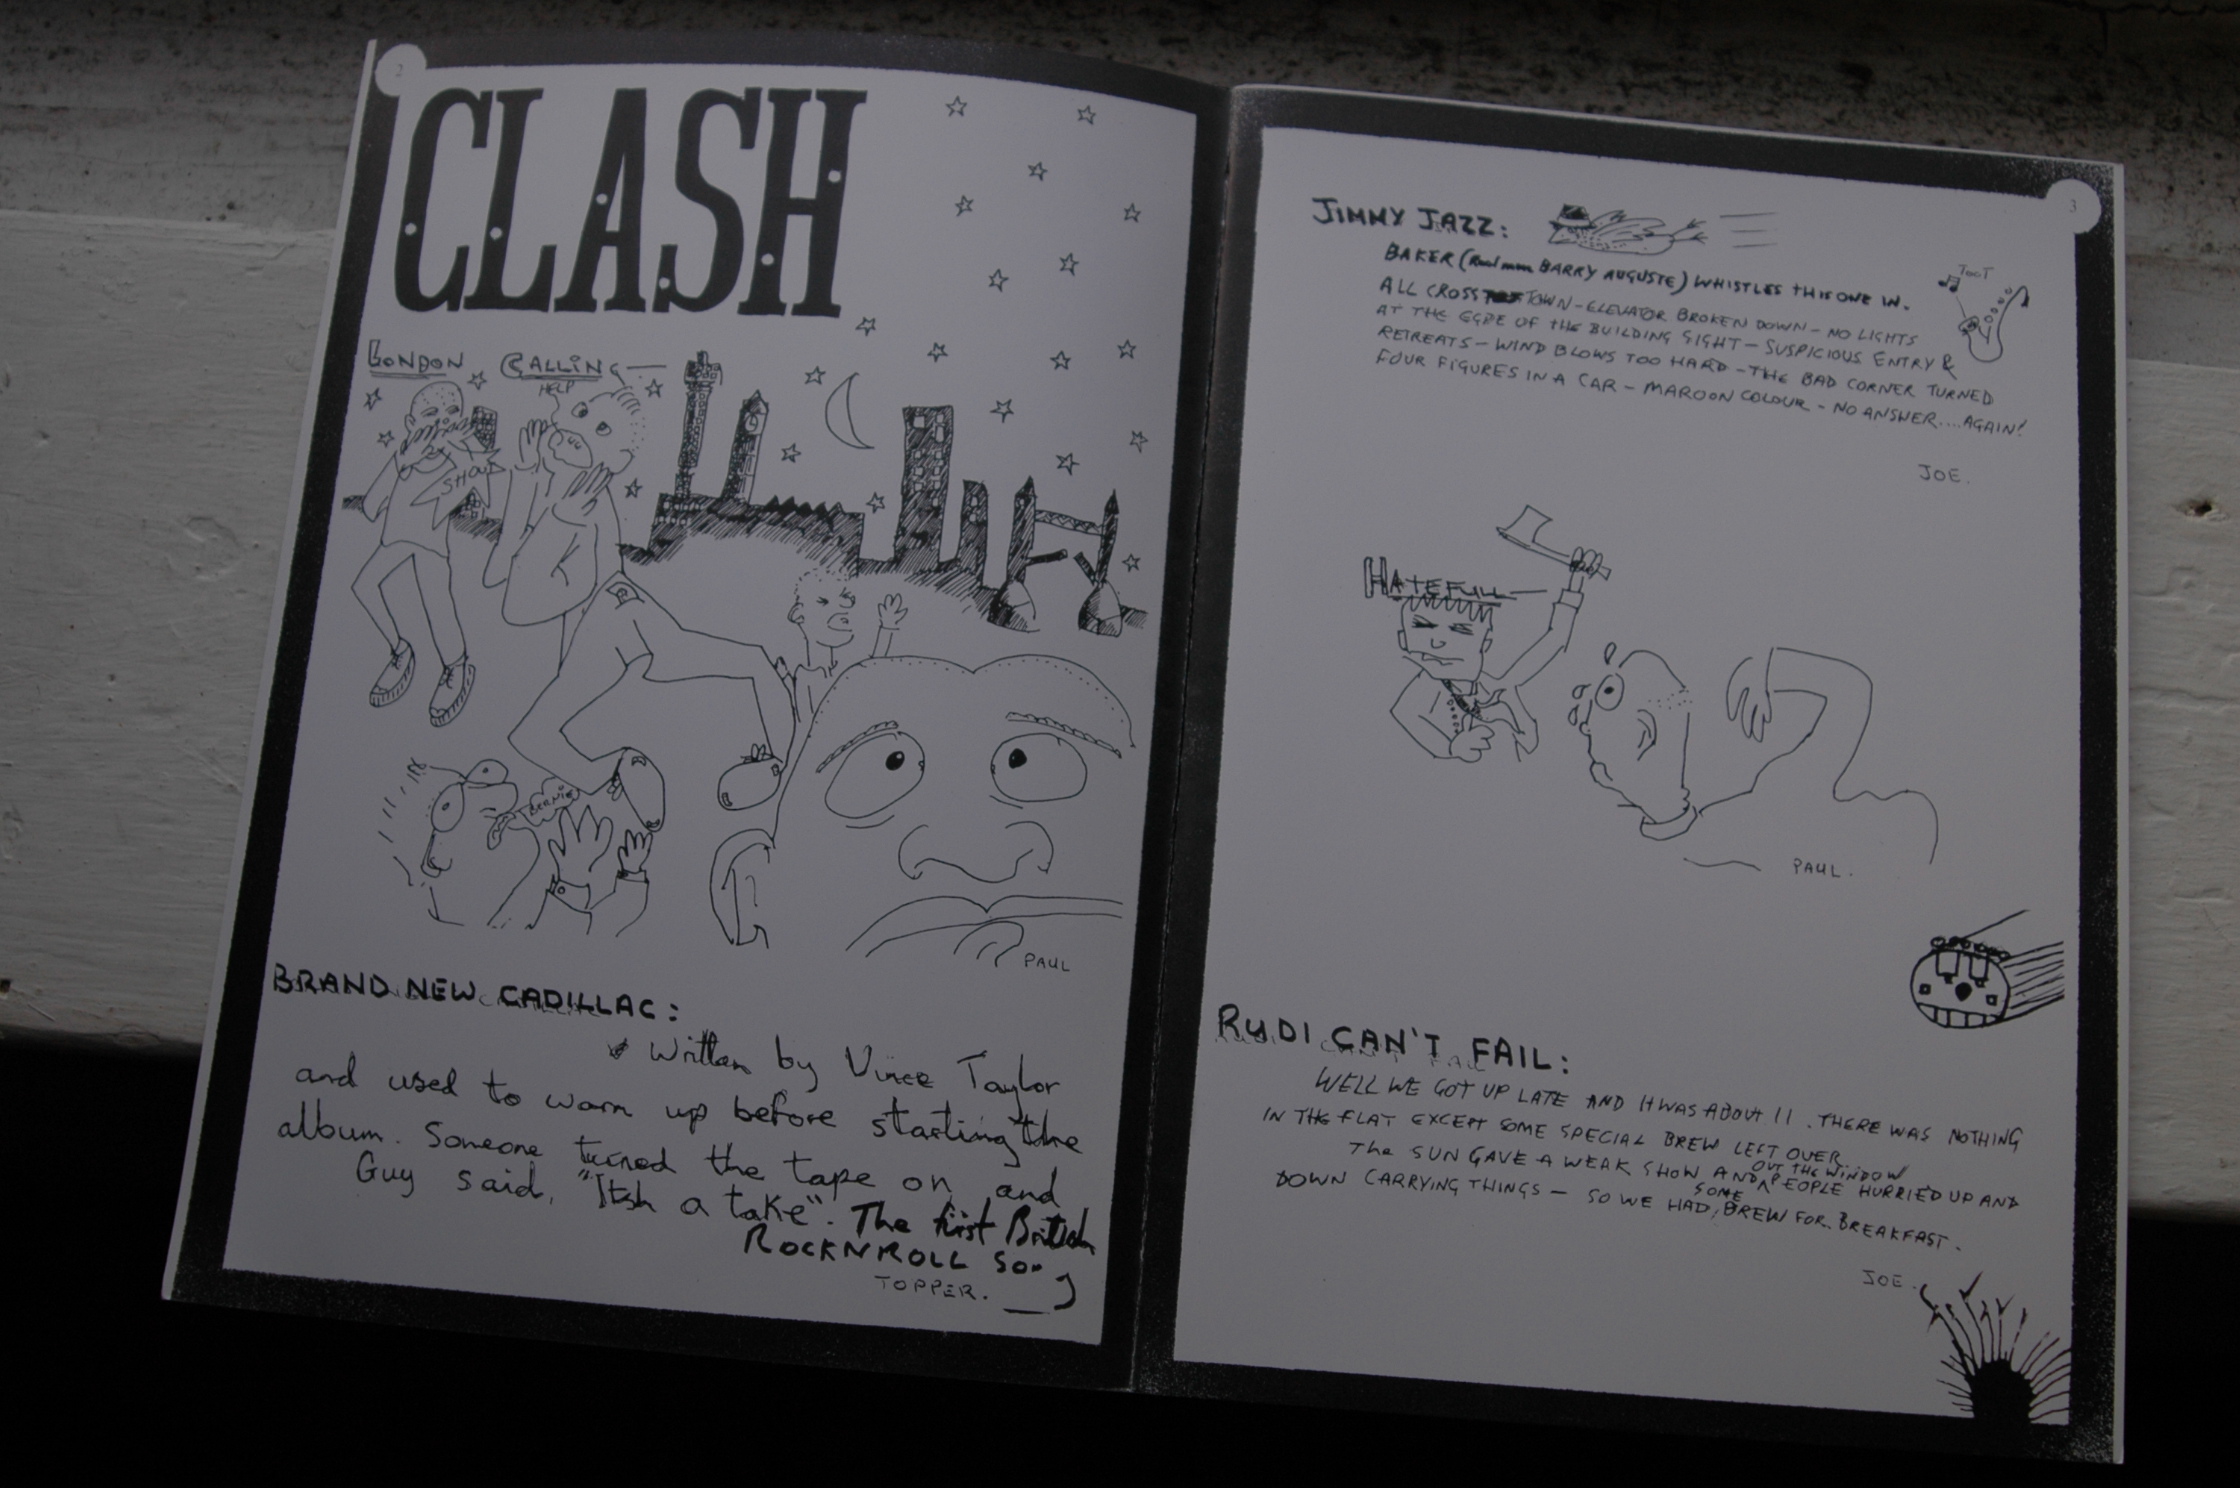 2
CLASH
LONDON CALLING —
HELP
SHOUT
BERNIE
PAUL
BRAND NEW CADILLAC:
Written by Vince Taylor
and used to warm up before starting the
album. Someone turned the tape on, and
Guy said, "Itsh a take". The first British
ROCKNROLL SONG
TOPPER.
3
JIMMY JAZZ:
BAKER (Real name BARRY AUGUSTE) WHISTLES THIS ONE IN.
ALL CROSS TOWN – ELEVATOR BROKEN DOWN – NO LIGHTS
AT THE EGDE OF THE BUILDING SIGHT – SUSPICIOUS ENTRY &
RETREATS – WIND BLOWS TOO HARD – THE BAD CORNER TURNED
FOUR FIGURES IN A CAR – MAROON COLOUR – NO ANSWER....AGAIN!
TOOT
JOE.
HATEFULL —
PAUL.
RUDI CAN'T FAIL:
WELL WE GOT UP LATE AND IT WAS ABOUT 11. THERE WAS NOTHING
IN THE FLAT EXCEPT SOME SPECIAL BREW LEFT OVER.
The SUN GAVE A WEAK SHOW AND OUT THE WINDOW PEOPLE HURRIED UP AND
DOWN CARRYING THINGS – SO WE HAD SOME BREW FOR BREAKFAST.
JOE.